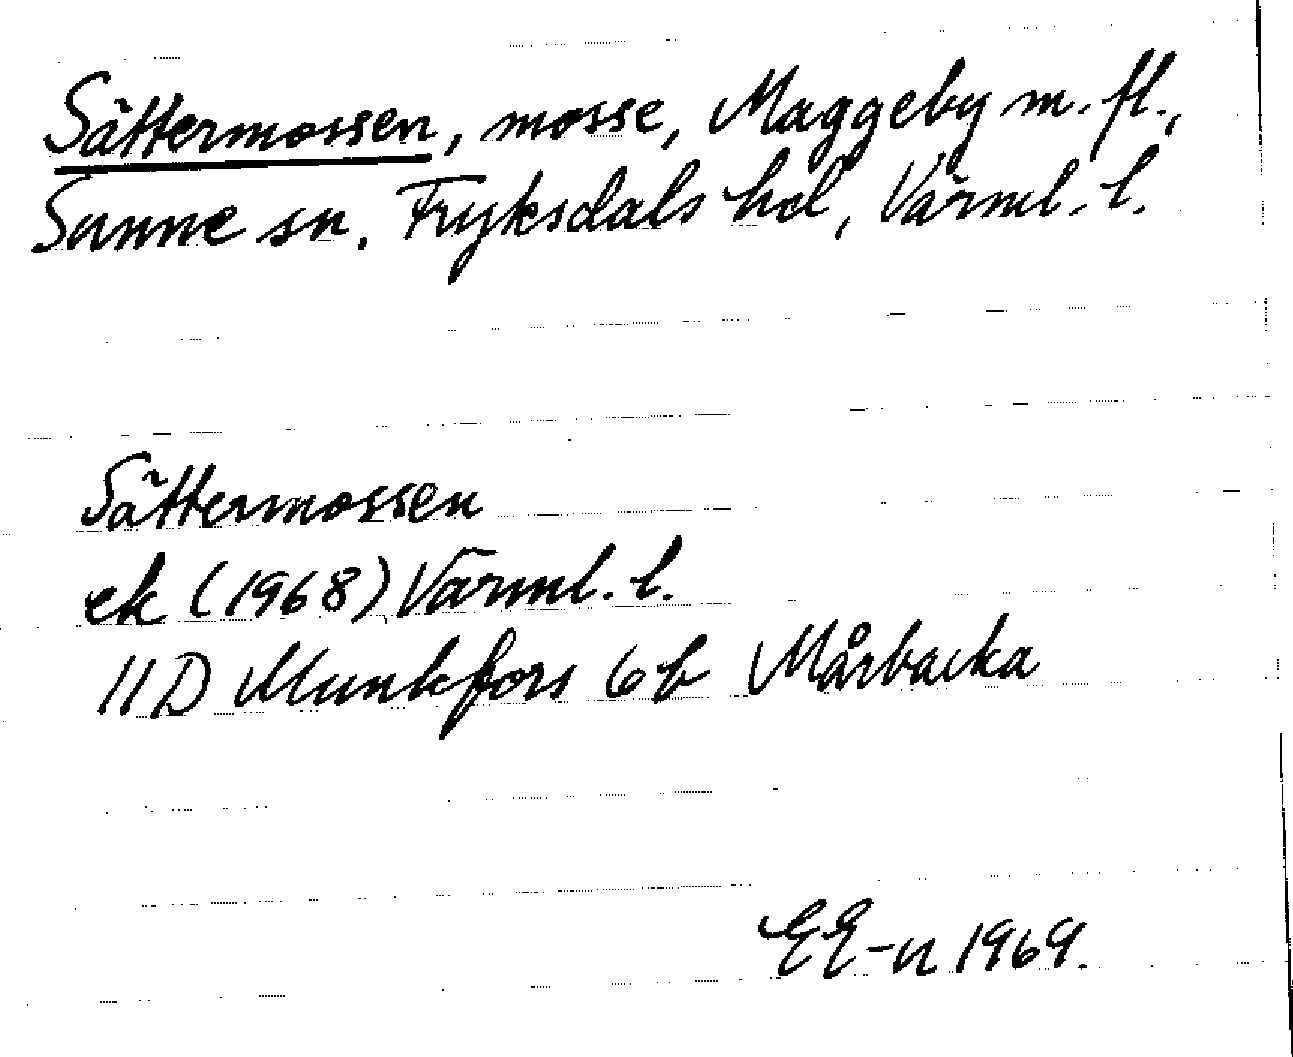 Sättermossen, mosse, Maggeby m. fl.,
Sunne sn. Fryksdals hd, Värml. l.
Sättermossen
ek (1968) Värml. l.
11D Munkfors 6b Mårbacka
EE-n 1969.